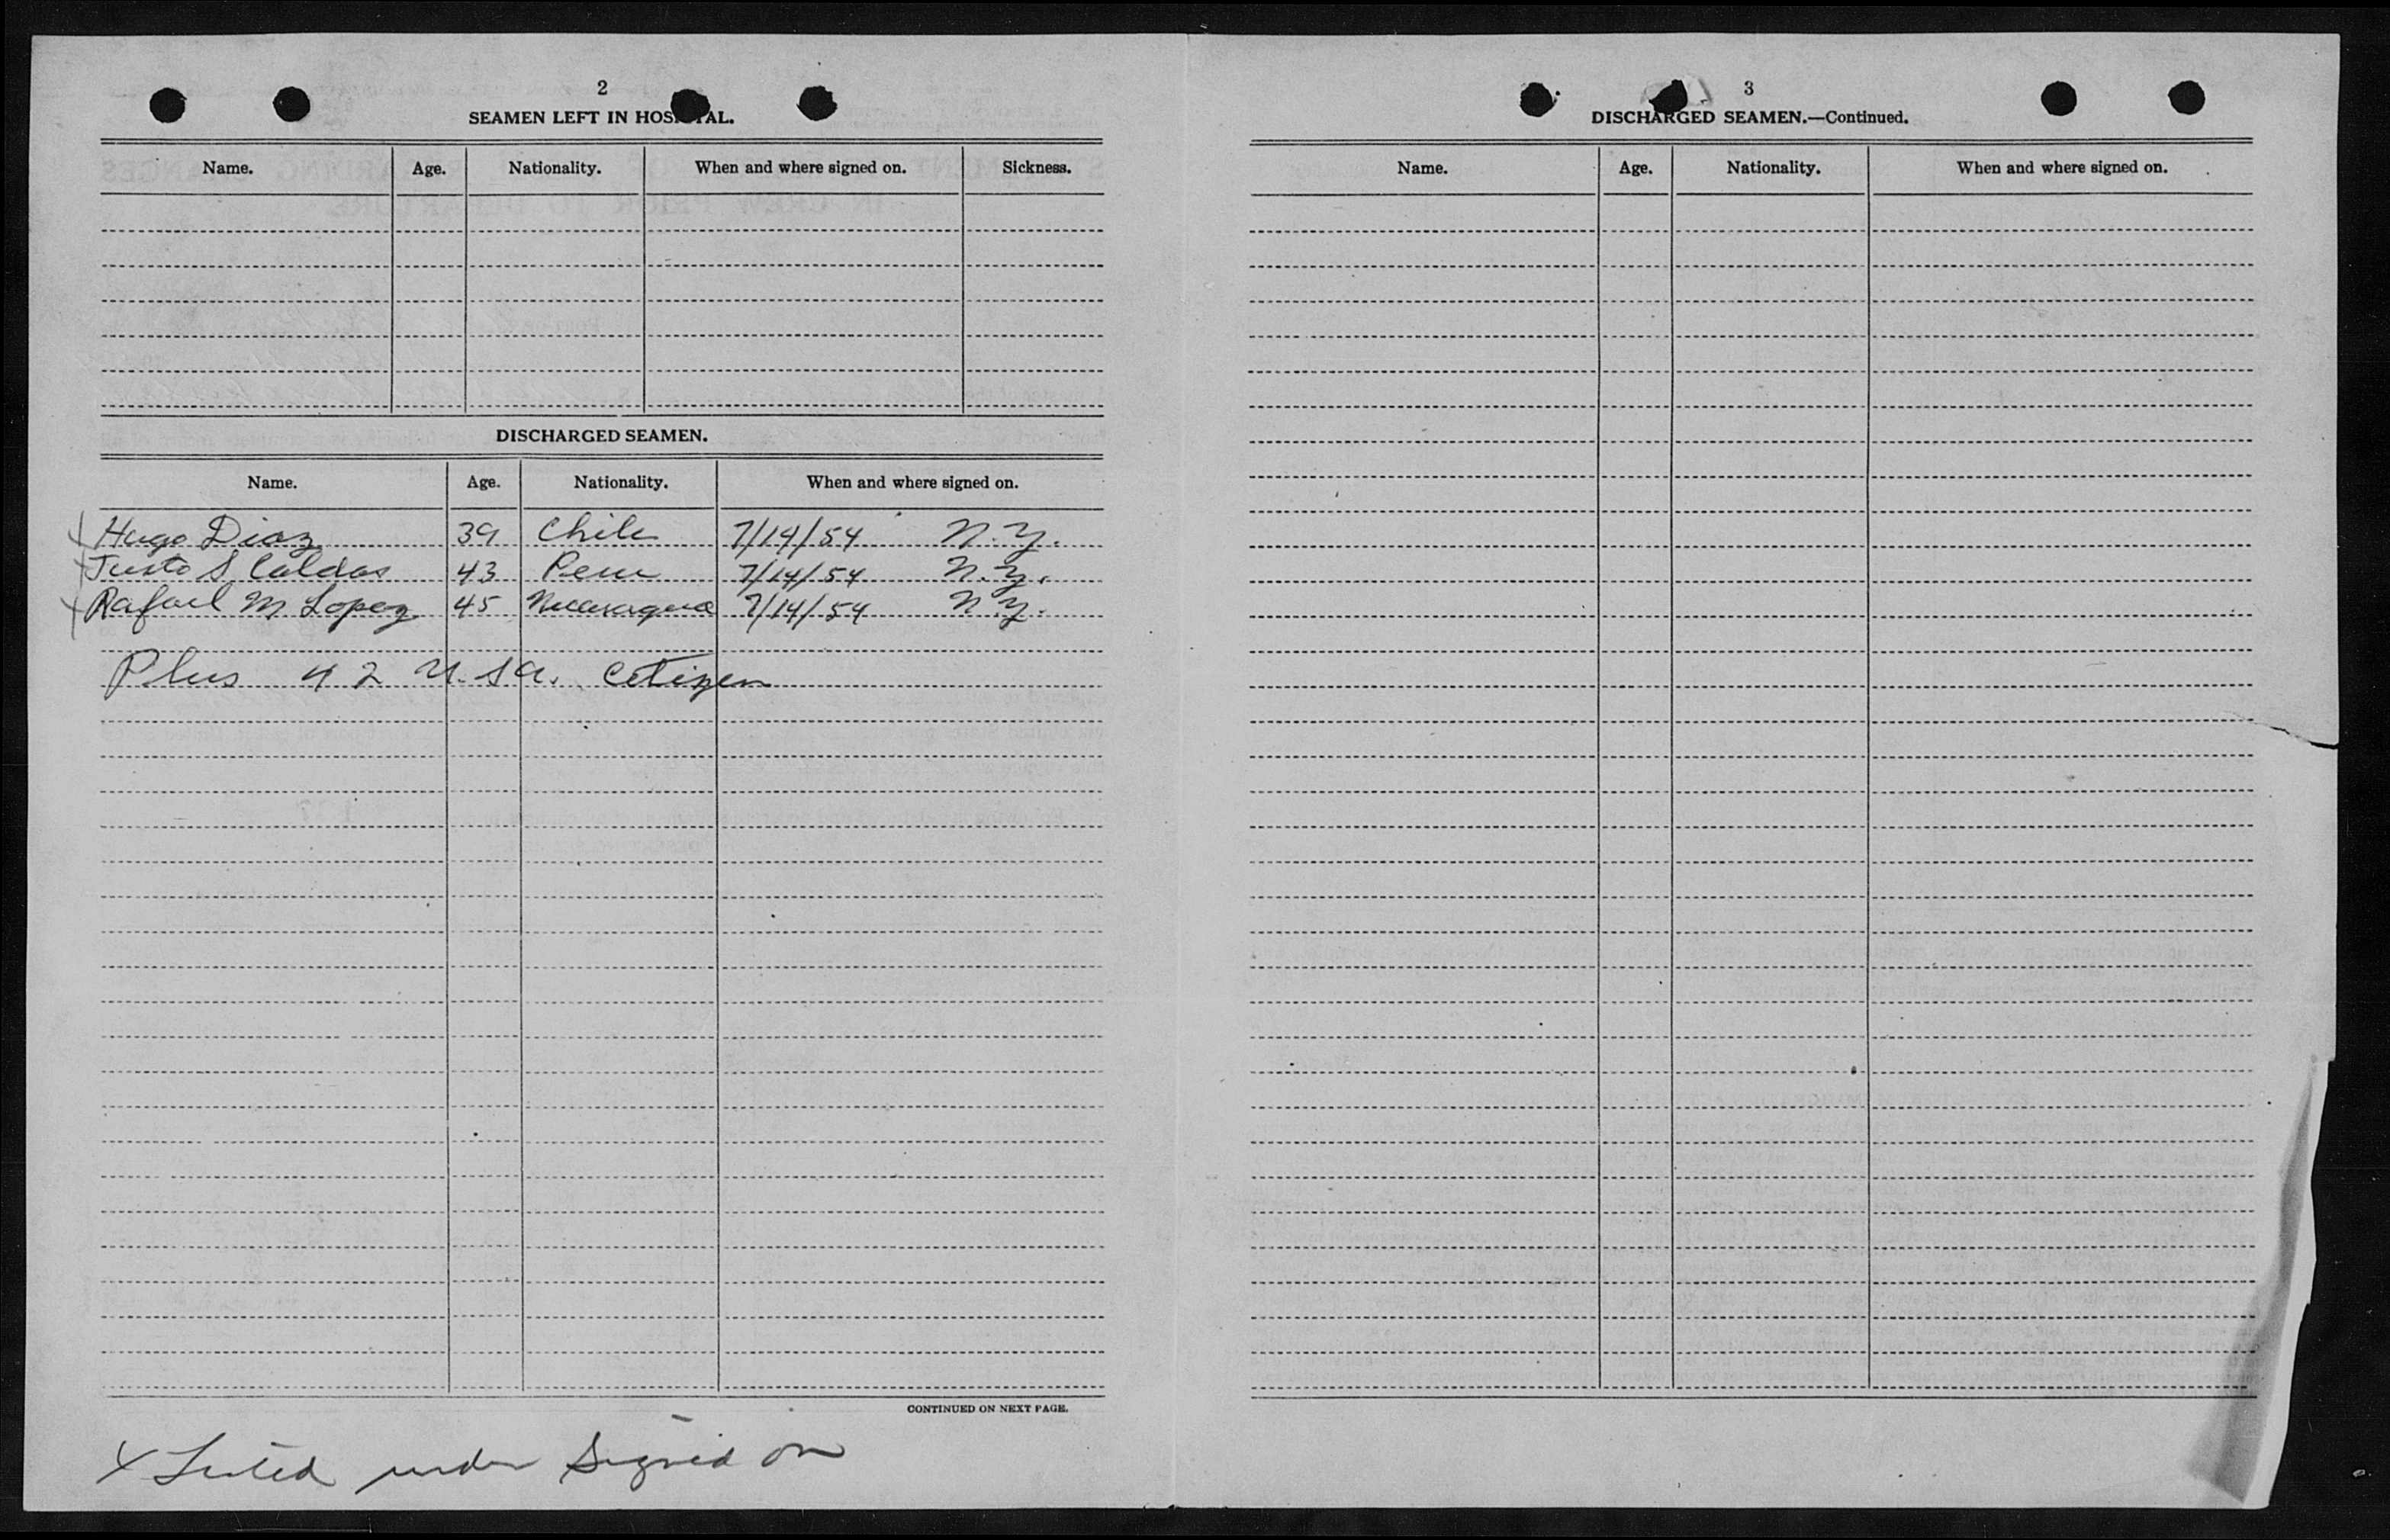 2
SEAMEN LEFT IN HOSPITAL.
Name. Age. Nationality. When and where signed on. Sickness.
DISCHARGED SEAMEN.
Name. Age. Nationality. When and where signed on.
x Hugo Diaz 39 Chile 7/14/54 N.Y.
x Justo S Caldas 43 Peru 7/14/54 N.Y.
x Rafael M Lopez 45 Nicaragua 7/14/54 N.Y.
Plus 42 U.S.A. Citizen
CONTINUED ON NEXT PAGE.
x Listed under Signed on
3
DISCHARGED SEAMEN.—Continued.
Name. Age. Nationality. When and where signed on.